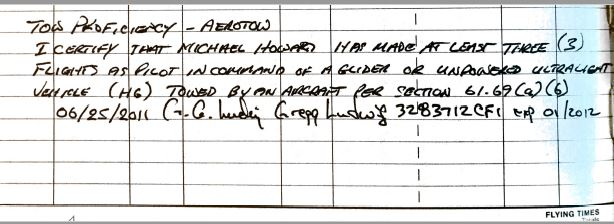 TOW PROFICIENCY - AEROTOW
I CERTIFY THAT MICHAEL HOWARD HAS MADE AT LEAST THREE (3)
FLIGHTS AS PILOT IN COMMAND OF A GLIDER OR UNPOWERED ULTRALIGHT
VEHICLE (HG) TOWED BY AN AIRCRAFT PER SECTION 61.69(a)(6)
06/25/2011 G. G. Ludwig Gregg Ludwig 3283712CFI exp 01/2012
FLYING TIMES